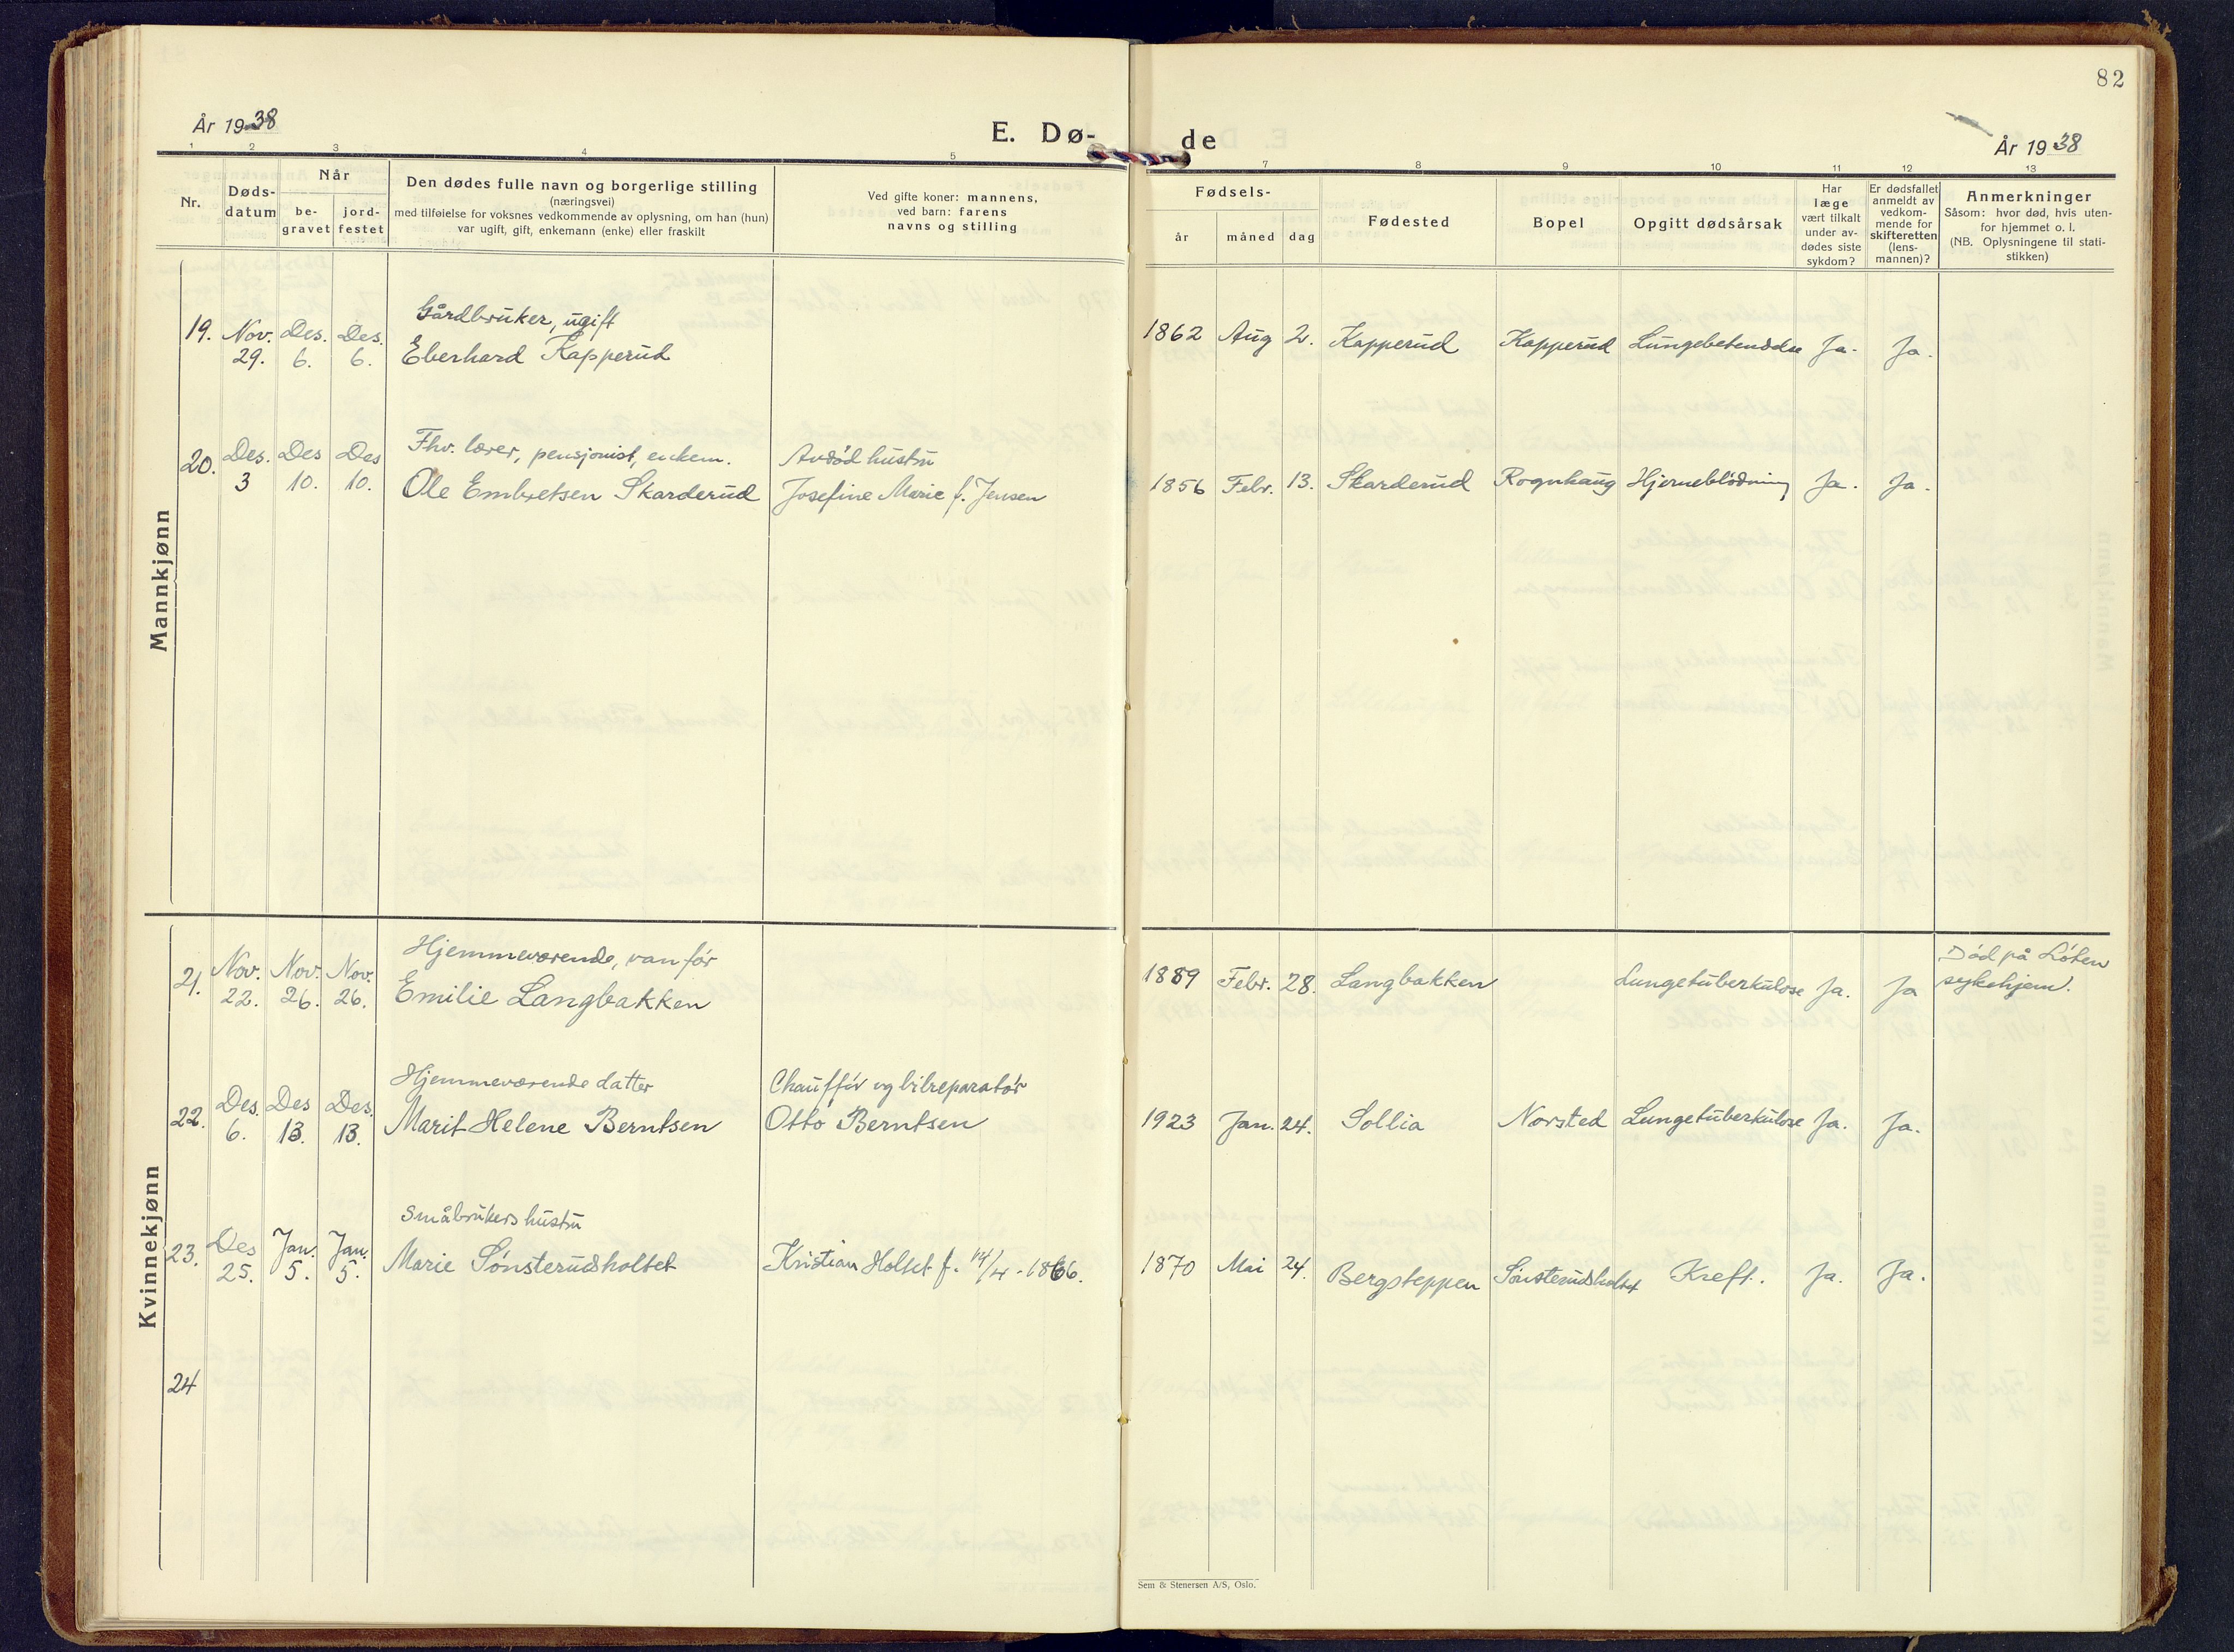 82
År 1938
E. Dø-
de
År 1938
1 2 3 4 5 7 8 9 10 11 12 13
Nr.
Døds-
datum
Når
be-
gravet
jord-
festet
Den dødes fulle navn og borgerlige stilling
(næringsvei)
med tilføielse for voksnes vedkommende av oplysning, om han (hun)
var ugift, gift, enkemann (enke) eller fraskilt
Ved gifte koner: mannens,
ved barn: farens
navns og stilling
Fødsels-
år
måned
dag
Fødested
Bopel
Opgitt dødsårsak
Har
læge
vært tilkalt
under av-
dødes siste
sykdom?
Er dødsfallet
anmeldt av
vedkom-
mende for
skifteretten
(lens-
mannen)?
Anmerkninger
Såsom: hvor død, hvis uten-
for hjemmet o. l.
(NB. Oplysningene til stati-
stikken)
Mannkjønn
Gårdbruker, ugift
19. Nov. Des. Des. 1862 Aug 2. Kapperud Kapperud Lungebetendelse Ja. Ja.
29. 6. 6. Eberhard Kapperud
Fhv. lærer, pensjonist, enkem. Avdød hustru
20. Des. Des Des
3 10. 10. Ole Embretsen Skarderud Josefine Marie f. Jensen 1856 Febr. 13. Skarderud Rognhaug Hjerneblødning Ja. Ja.
Kvinnekjønn
Hjemmeværende, vanfør Død på Løten
21. Nov. Nov. Nov. 1889 Febr. 28. Langbakken Lungetuberkulose Ja. Ja sykehjem.
22. 26. 26. Emilie Langbakken
Hjemmeværende datter Chauffør og bilreparatør
22. Des. Des Des. Marit Helene Berntsen Otto Berntsen 1923 Jan. 24. Sollia Norsted Lungetuberkulose Ja. Ja.
6. 13. 13.
Småbrukers hustru
23. Des Jan. Jan. Marie Sønsterudsholtet Kristian Holtet f. 14/4 - 1866. 1870 Mai 24. Bergsteppen Sønsterudsholtet Kreft. Ja. Ja.
25. 5. 5.
24
Sem & Stenersen A/S, Oslo.